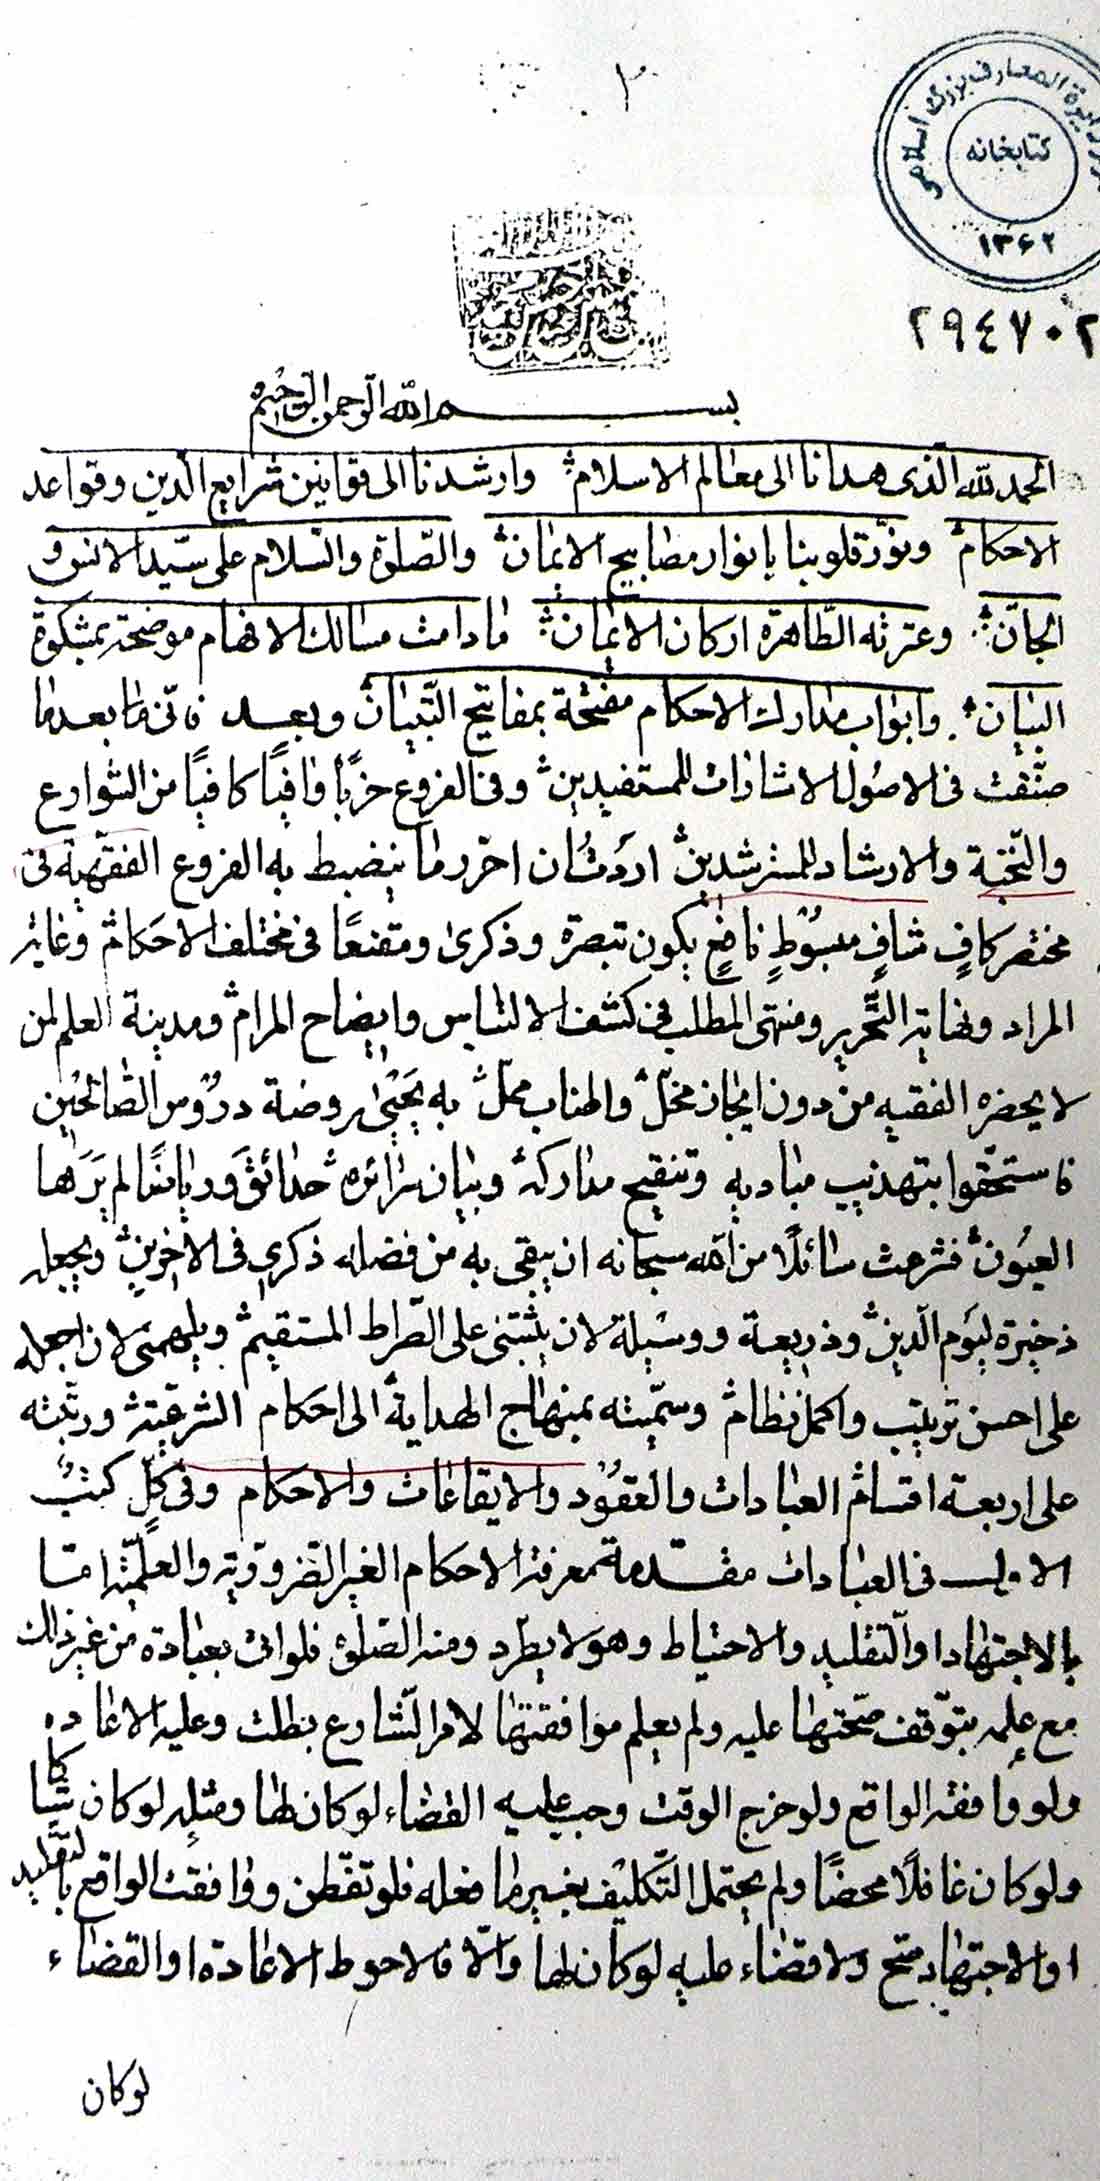 ٢
دایرة المعارف بزرگ اسلامی
کتابخانه
۱۳۶۲
٢٩٤٧٠٢
بسم الله الرحمن الرحيم
الحمد لله الذى هدانا الى معالم الاسلام وارشدنا الى قوانين شرايع الدين وقواعد
الاحكام ونوّر قلوبنا بانوار مصابيح الايمان والصّلوة والسّلام على سيّد الانس و
الجانّ وعترته الطّاهرة اركان الايمان ما دامت مسالك الافهام موضحة بمشكوة
البيان وابواب مدارك الاحكام مفتحة بمفاتيح التّبيان وبعد فانّى لما بعد ما
صنّفت فى الاصول الاشارات للمستفيدين وفى الفروع حزبًا وافيًا كافيًا من الشّوارع
والنّخبة والارشاد للمسترشدين اردت ان احرّر ما ينضبط به الفروع الفقهية فى
مختصر كافٍ شافٍ مبسوطٍ نافعٍ يكون تبصرة وذكرى ومقنعًا فى مختلف الاحكام وغاية
المراد ونهاية التّحرير ومنتهى المطلب فى كشف الالتباس وايضاح المرام ومدينة العلم لمن
لا يحضره الفقيه من دون ايجاز مخلّ والهناب مملّ به يحيى روضة دروس الصّالحين
فاستحقّوا بتهذيب مباديه وتنقيح مداركه وبيان سرائره حدائق ورياضًا لم يرها
العيون فشرعت سائلًا من الله سبحانه ان يبقى به من فضله ذكرى فى الاخرين ويجعله
ذخيرة ليوم الدّين وذريعة ووسيلة لان يثبّتنى على الصّراط المستقيم ويلهمنى لان اجعله
على احسن ترتيب واكمل نظام وسمّيته بمنهاج الهداية الى احكام الشرعيّة ورتّبته
على اربعة اقسام العبادات والعقود والايقاعات والاحكام وفى كلّ كتب
الاول فى العبادات مقدمة معرفة الاحكام الغير الضّروريّة والعلميّة امّا
بالاجتهاد او التّقليد والاحتياط وهو لا يطّرد ومنه الصّلوة فلو اتى بعبادة من غير ذلك
مع علمه بتوقّف صحّتها عليه ولم يعلم موافقتها لامر الشّارع بطلت وعليه الاعادة
ولو وافقه الواقع ولو خرج الوقت وجب عليه القضاء لو كان لها ومثله لو كان شاكا
ولو كان غافلًا محضًا ولم يحتمل التّكليف بغير ما فعله فلو تفطّن ووافقت الواقع بالتقليد
او الاجتهاد صح ولا قضاء عليه لو كان لها والّا فالاحوط الاعادة او القضاء
لو كان